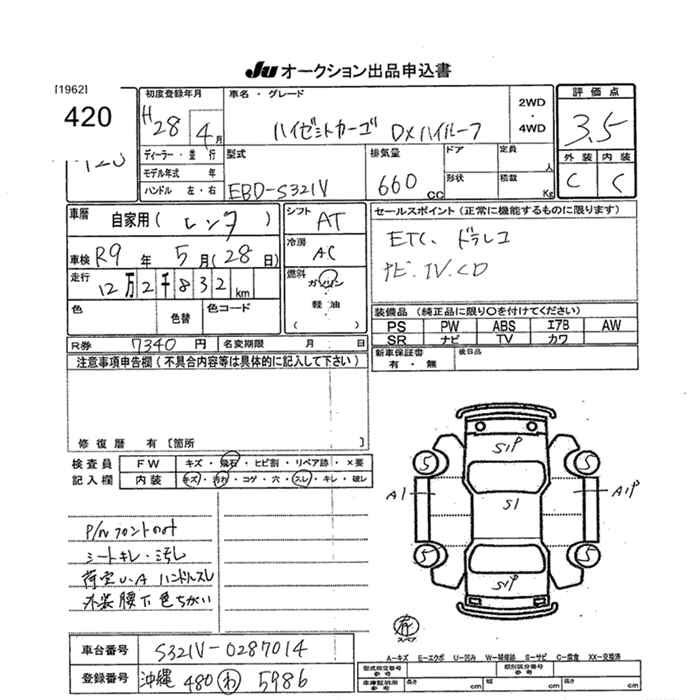 Ju オークション出品申込書
[1962]
420
初度登録年月
H28 4月
車名・グレード
ハイゼットカーゴ DXハイルーフ
2WD
・
4WD
評価点
3.5
外装 内装
C C
ディーラー・並行
モデル年式 年
ハンドル 左・右
型式
EBD-S321V
排気量
660 cc
ドア
形状
定員 人
積載 Kg
車歴
自家用 ( レンタ )
車検 R9年 5月 (28日)
走行
12万2千832 km
色
色替
色コード
シフト AT
冷房 AC
燃料
ガソリン
軽油
( )
セールスポイント (正常に機能するものに限ります)
ETC、ドラレコ
ナビ、TV、CD
装備品 (純正品に限り○を付けてください)
PS PW ABS エアB AW
SR ナビ TV カワ
R券 7340円
名変期限 月 日
新車保証書
有・無
後日品
注意事項申告欄 (不具合内容等は具体的に記入して下さい)
修復歴 有 [箇所 ]
検査員
記入欄
FW キズ・飛石・ヒビ割・リペア跡・×要
内装 キズ・汚れ・コゲ・穴・スレ・キレ・破レ
P/Wフロントのみ
シートキレ・汚レ
荷室U・A ハンドルスレ
外装腰下色ちがい
S1P
5 5
A1 S1 A1P
5 5
S1P
有
スペア
A-キズ E-エクボ U-凹み W-補修跡 S-サビ C-腐食 XX-交換済
車台番号 S321V-0287014
登録番号 沖縄 480 わ 5986
型式指定番号
参考
類別区分番号
参考
車庫証明用
参考
長さ cm
幅 cm
高さ cm